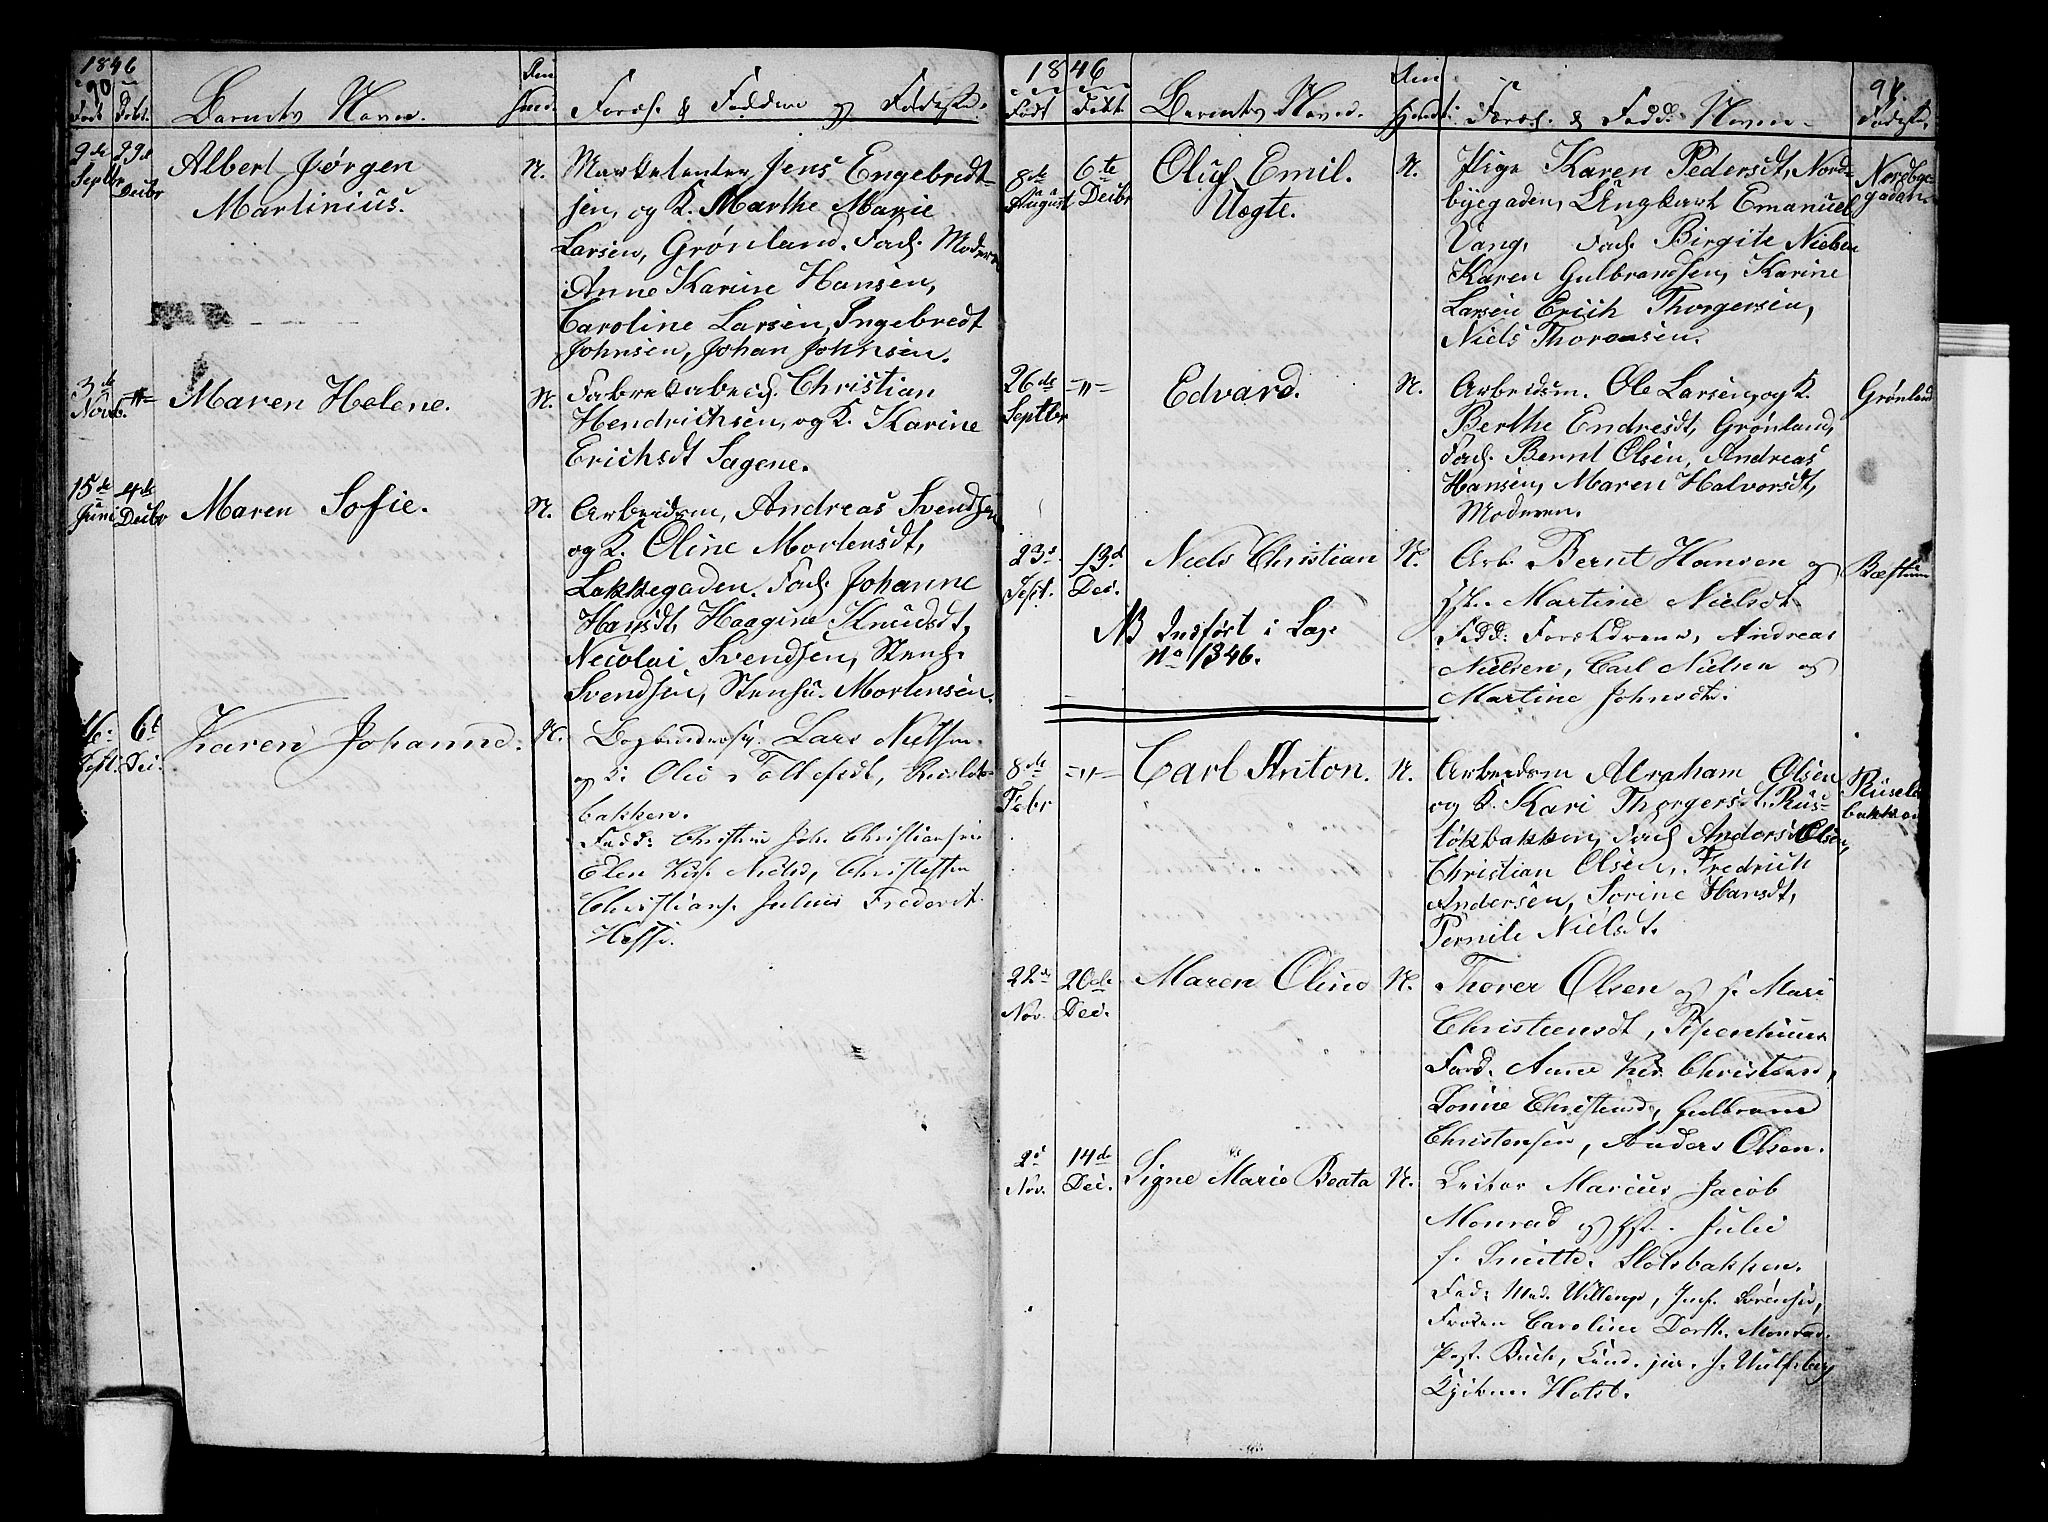 1846
90
Født Døbt. Barnets Navn. Foræl. & Faddere og Fødested.
9de Septbr
29de Decbr
Albert Jørgen
Martinius.
N.
Marketenter Jens Engebredt-
sen, og K. Marthe Marie
Larsen, Grønland. Fad. Moderen
Anne Karine Hansen,
Caroline Larsen, Ingebredt
Johnsen, Johan Johnsen.
3de Novb.
–"–
Maren Helene.
N.
Fabrekabeid. Christian
Hendrichsen, og K. Karine
Erichsdt Sagene.
15de Juni
4de Decbr
Maren Sofie.
N.
Arbeidsm, Andreas Svendsen
og K. Oline Mortensdt,
Lakkegaden. Fad. Johanne
Hansdt, Haagine Knudsdt,
Necolai Svendsen, Stenh.
Svendsen, Stenhu. Mortensen.
16. Sept.
6t Dec.
Karen Johanne.
N.
Bogbindersv. Lars Nielsen
og K. Olie Tollefsdt, Ruseløk-
bakken.
Fadd: Christine Joh. Christiansen
Elen Kirs. Niels, Christeffer
Christians. Julius Frederik
Hesse.
1846
94
Født Døbt Barnets Navn. Foræl. & Fadd. Navne Fødested.
8de August
6te Decbr
Oluf Emil.
Uægte.
N.
Pige Karen Pedersdt, Nord-
byegaden, & Ungkarl Emanuel
Vang, Fad. Birgite Nielsen
Karen Gulbrandsen, Karine
Larsen Erich Thorgersen,
Niels Thoronsen.
Nordbye-
gaden.
26de Septbr
–"–
Edvard.
N.
Arbeidsm. Ole Larsen, og K.
Berthe Endresdt, Grønland,
Fad. Bernt Olsen, Andreas
Hansen, Maren Halvorsdt,
Moderen.
Grønland
23de Sept.
13d Dec.
Niels Christian
N.
Arb. Bernt Hansen og
Hst. Martine Nielsdt
Fadd: Forældrene, Andreas
Nielsen, Carl Nielsen og
Martine Johnsdt.
Bæstum
NB Indført i Lag
No 1346.
8de Febr
–"–
Carl Anton.
N.
Arbeidsm Abraham Olsen
og K. Kari Thorgersdt. Rus-
løkbakken, Fad Anders Olsen,
Christian Olsen, Fredrich
Andersen, Sorine Hansdt,
Pernile Nielsdt.
Ruseløk
bakken
22de Nov.
20de Dec.
Maren Oline
N.
Thorer Olsen og H. Mari
Christensdt, Pipenhuus
Fad. Anne Kir. Christens,
Lorine Christensd, Gulbrand
Christensen, Anders Olsen.
2d Nov.
14de Dec.
Signe Marie Beata
N.
Lektor Marcus Jacob
Monrad og Hst. Julie
f. Smith. Slotsbakken.
Fad: Mad. Willerup, Jmf. Sørensen,
Frøken Caroline Dorth. Monrad,
Past. Buch, Cand. jur. J. Wulfsberg
Kjøbm. Holst.